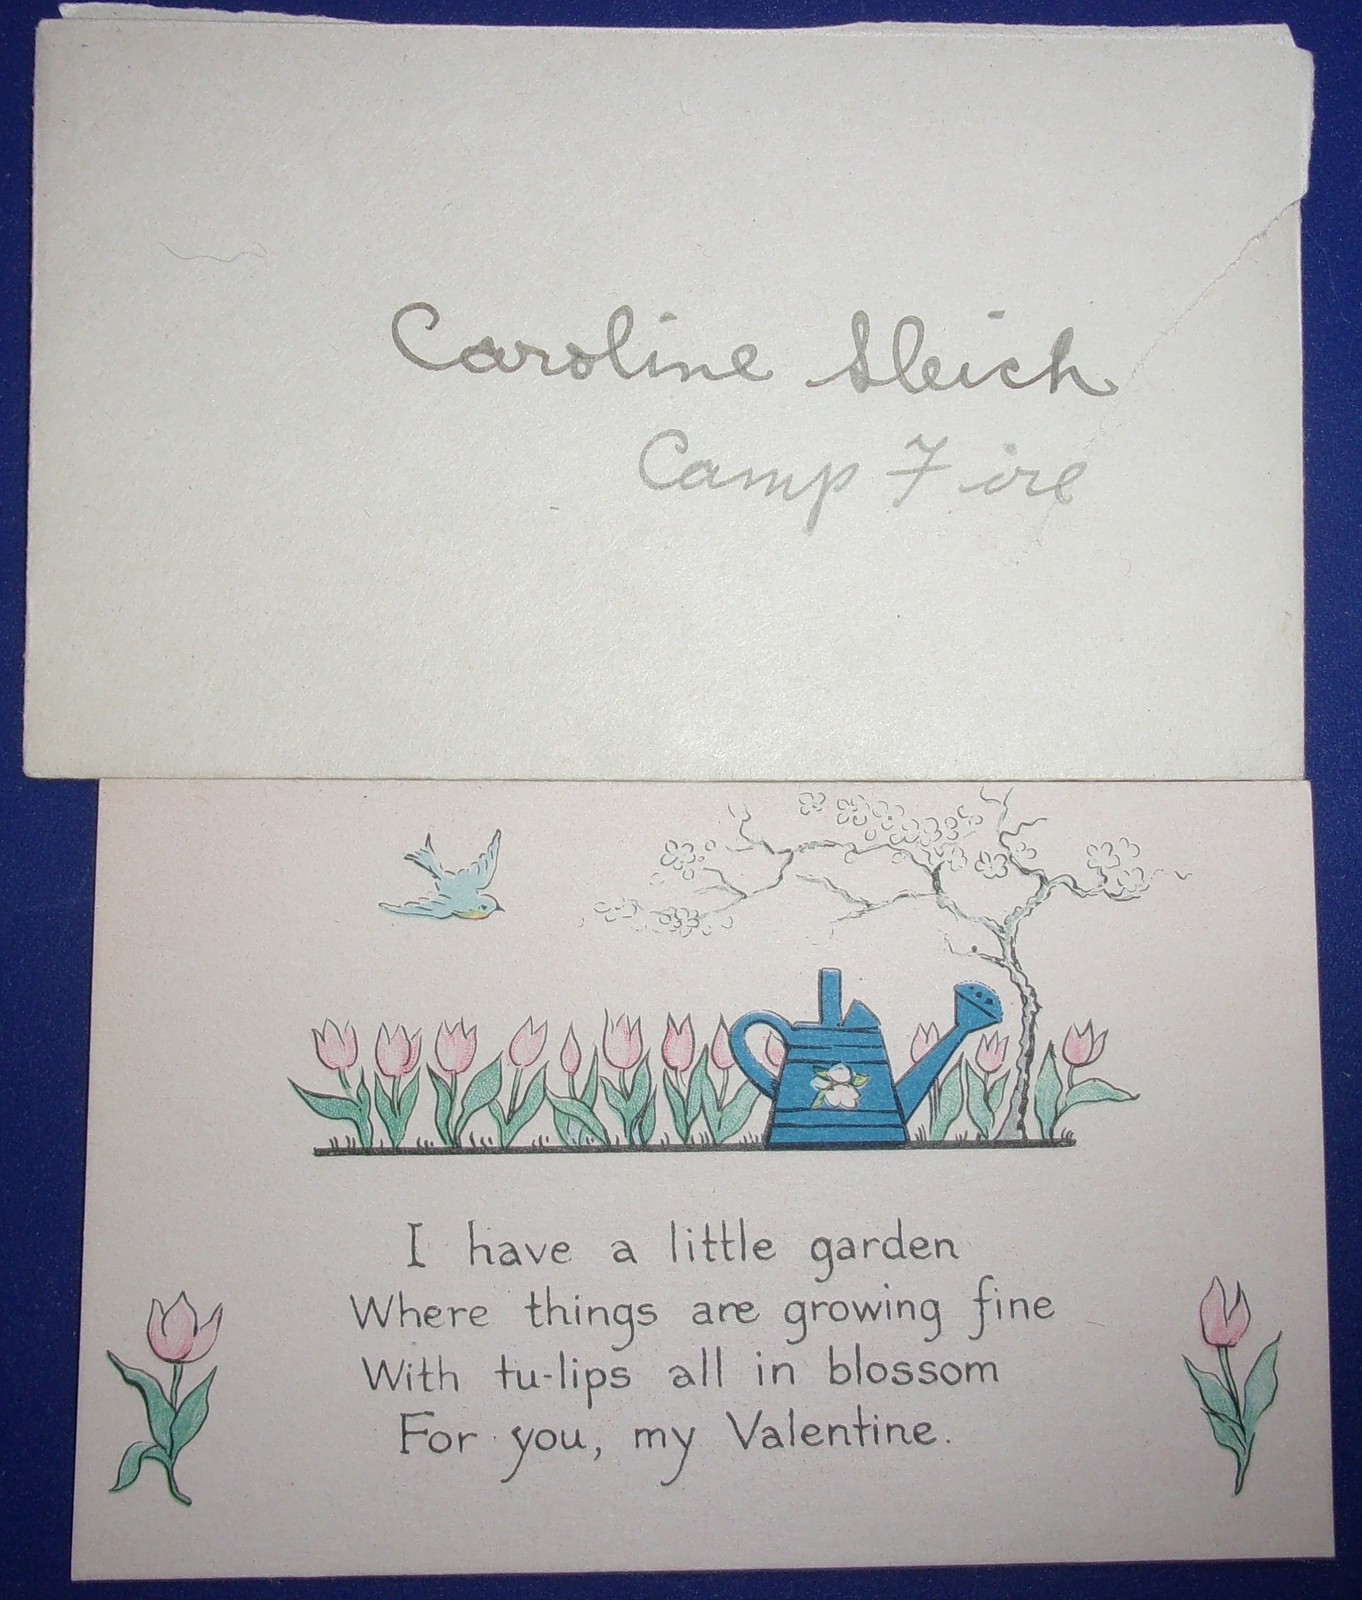 Caroline Sleich
Camp Fire
I have a little garden
Where things are growing fine
With tu-lips all in blossom
For you, my Valentine.